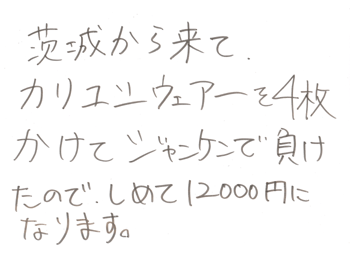 茨城から来て.
カリユシウェアーを4枚
かけてジャンケンで負け
たので、しめて12000円に
なります。